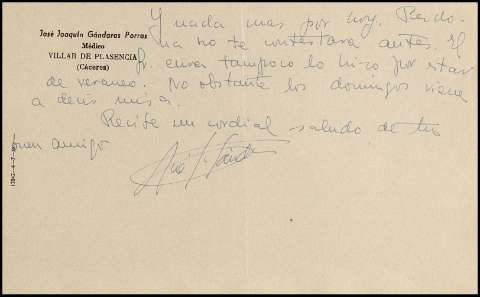 José Joaquín Gándaras Porras
Médico
VILLAR DE PLASENCIA
(Cáceres)
Y nada mas por hoy. Perdo-
na no te contestara antes. El
Sr. cura tampoco lo hizo por estar
de veraneo. No obstante los domingos viene
a decir misa.
Recibe un cordial saludo de tu
buen amigo